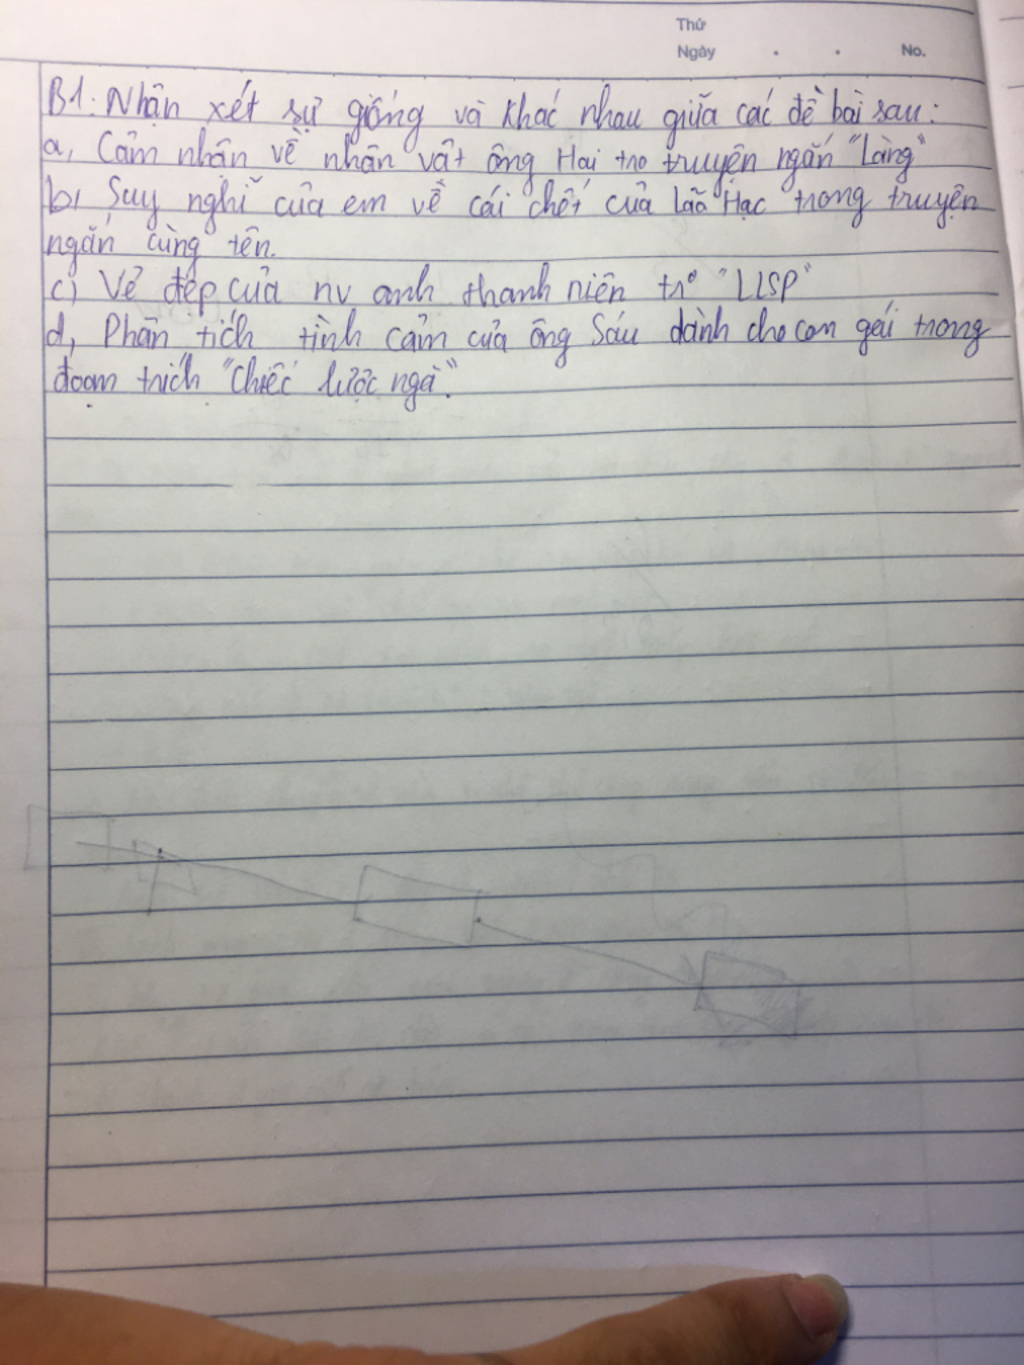 Thứ
Ngày . . No.
B1: Nhận xét sự giống và khác nhau giữa các đề bài sau:
a, Cảm nhận về nhận vật ông Hai tro truyện ngắn "Làng"
b, Suy nghĩ của em về cái chết của Lão Hạc trong truyện
ngắn cùng tên.
c) Vẻ đẹp của nv anh thanh niên tr° "LLSP"
d, Phân tích tình cảm của ông Sáu dành cho con gái trong
đoạn trích "Chiếc lược ngà".